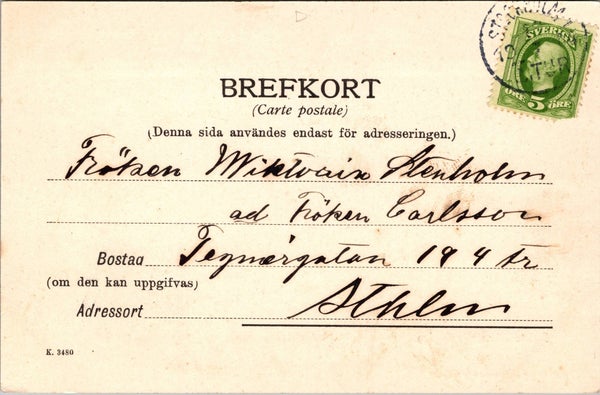 STOCKHOLM
SVERIGE
ÖRE 5 ÖRE
BREFKORT
(Carte postale)
(Denna sida användes endast för adresseringen.)
Fröken Wiktoria Stenholm
ad Fröken Carlsson
Bostad Tegnérgatan 19 4 tr
(om den kan uppgifvas)
Adressort Sthlm
K. 3480